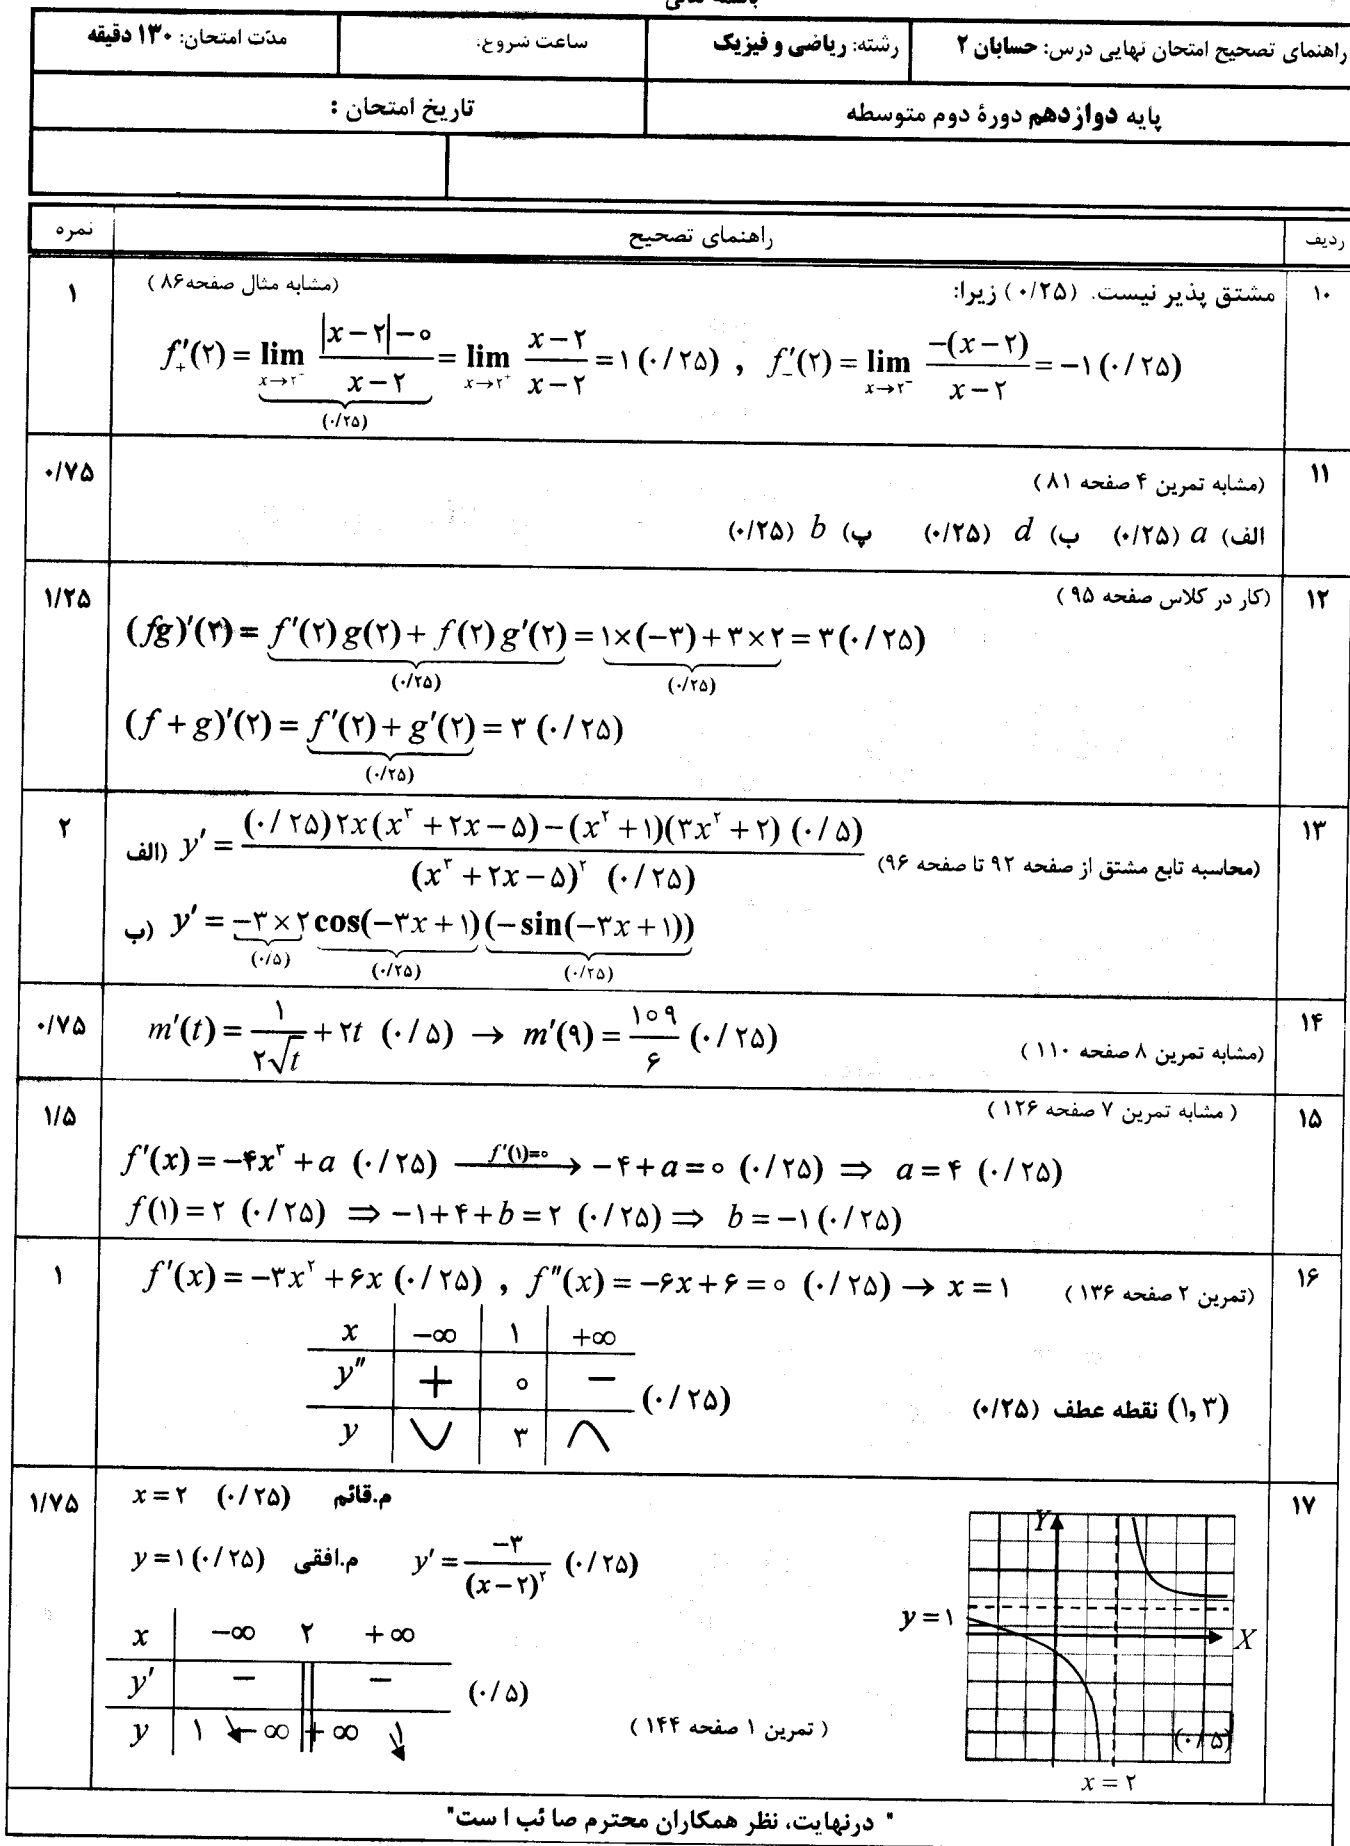 راهنمای تصحیح امتحان نهایی درس: حسابان ۲ رشته: ریاضی و فیزیک ساعت شروع: مدّت امتحان: ۱۳۰ دقیقه
پایه دوازدهم دورهٔ دوم متوسطه تاریخ امتحان :
ردیف راهنمای تصحیح نمره
۱۰ مشتق پذیر نیست. (۰/۲۵) زیرا: (مشابه مثال صفحه ۸۶) ۱
f'₊(۲) = lim x→۲⁻ (|x−۲|−۰)/(x−۲) (۰/۲۵) = lim x→۲⁺ (x−۲)/(x−۲) = ۱ (۰/۲۵) , f'₋(۲) = lim x→۲⁻ −(x−۲)/(x−۲) = −۱ (۰/۲۵)
۱۱ (مشابه تمرین ۴ صفحه ۸۱) ۰/۷۵
الف) a (۰/۲۵) ب) d (۰/۲۵) پ) b (۰/۲۵)
۱۲ (کار در کلاس صفحه ۹۵) ۱/۲۵
(fg)'(۲) = f'(۲)g(۲) + f(۲)g'(۲) (۰/۲۵) = ۱×(−۳)+۳×۲ (۰/۲۵) = ۳ (۰/۲۵)
(f+g)'(۲) = f'(۲)+g'(۲) (۰/۲۵) = ۳ (۰/۲۵)
۱۳ (محاسبه تابع مشتق از صفحه ۹۲ تا صفحه ۹۶) ۲
الف) y' = ((۰/۲۵) ۲x(x³+۲x−۵)−(x²+۱)(۳x²+۲) (۰/۵))/((x³+۲x−۵)² (۰/۲۵))
ب) y' = −۳×۲ (۰/۵) cos(−۳x+۱) (۰/۲۵) (−sin(−۳x+۱)) (۰/۲۵)
۱۴ (مشابه تمرین ۸ صفحه ۱۱۰) ۰/۷۵
m'(t) = ۱/(۲√t) + ۲t (۰/۵) → m'(۹) = ۱۰۹/۶ (۰/۲۵)
۱۵ (مشابه تمرین ۷ صفحه ۱۲۶) ۱/۵
f'(x) = −۴x³ + a (۰/۲۵) f'(۱)=۰ → −۴+a=۰ (۰/۲۵) ⇒ a=۴ (۰/۲۵)
f(۱)=۲ (۰/۲۵) ⇒ −۱+۴+b=۲ (۰/۲۵) ⇒ b=−۱ (۰/۲۵)
۱۶ (تمرین ۲ صفحه ۱۳۶) ۱
f'(x) = −۳x²+۶x (۰/۲۵) , f''(x) = −۶x+۶=۰ (۰/۲۵) → x=۱
x −∞ ۱ +∞
y'' + ۰ − (۰/۲۵)
y ۳
(۱,۳) نقطه عطف (۰/۲۵)
۱۷ ۱/۷۵
x=۲ (۰/۲۵) م.قائم
y=۱ (۰/۲۵) م.افقی y' = −۳/(x−۲)² (۰/۲۵)
x −∞ ۲ +∞
y' − − (۰/۵)
y ۱ ↘ −∞ +∞ ↘ ۱
(تمرین ۱ صفحه ۱۴۴)
Y
y=۱
X
(۰/۵)
x=۲
" درنهایت، نظر همکاران محترم صائب است"